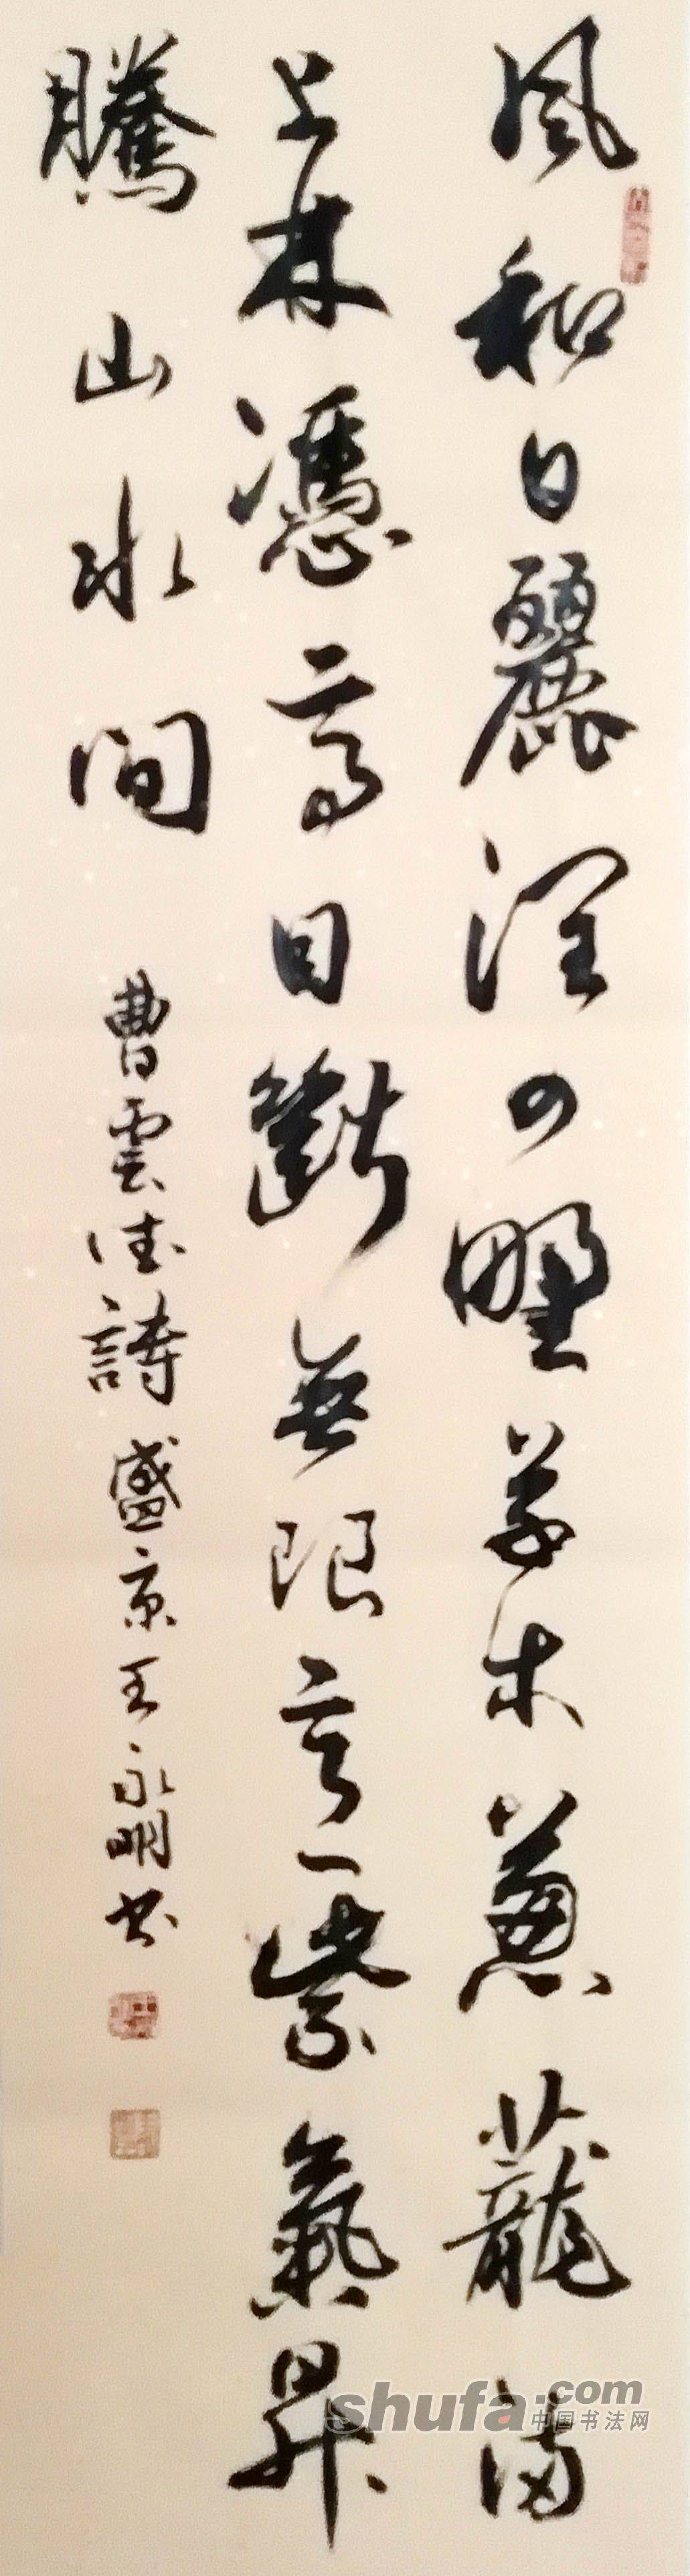 風和日麗潤四野草木蔥蘢滿
上林憑高目斷無限意紫氣昇
騰山水間
曹雲德詩 盛京王永明书
shufa.com
中国书法网